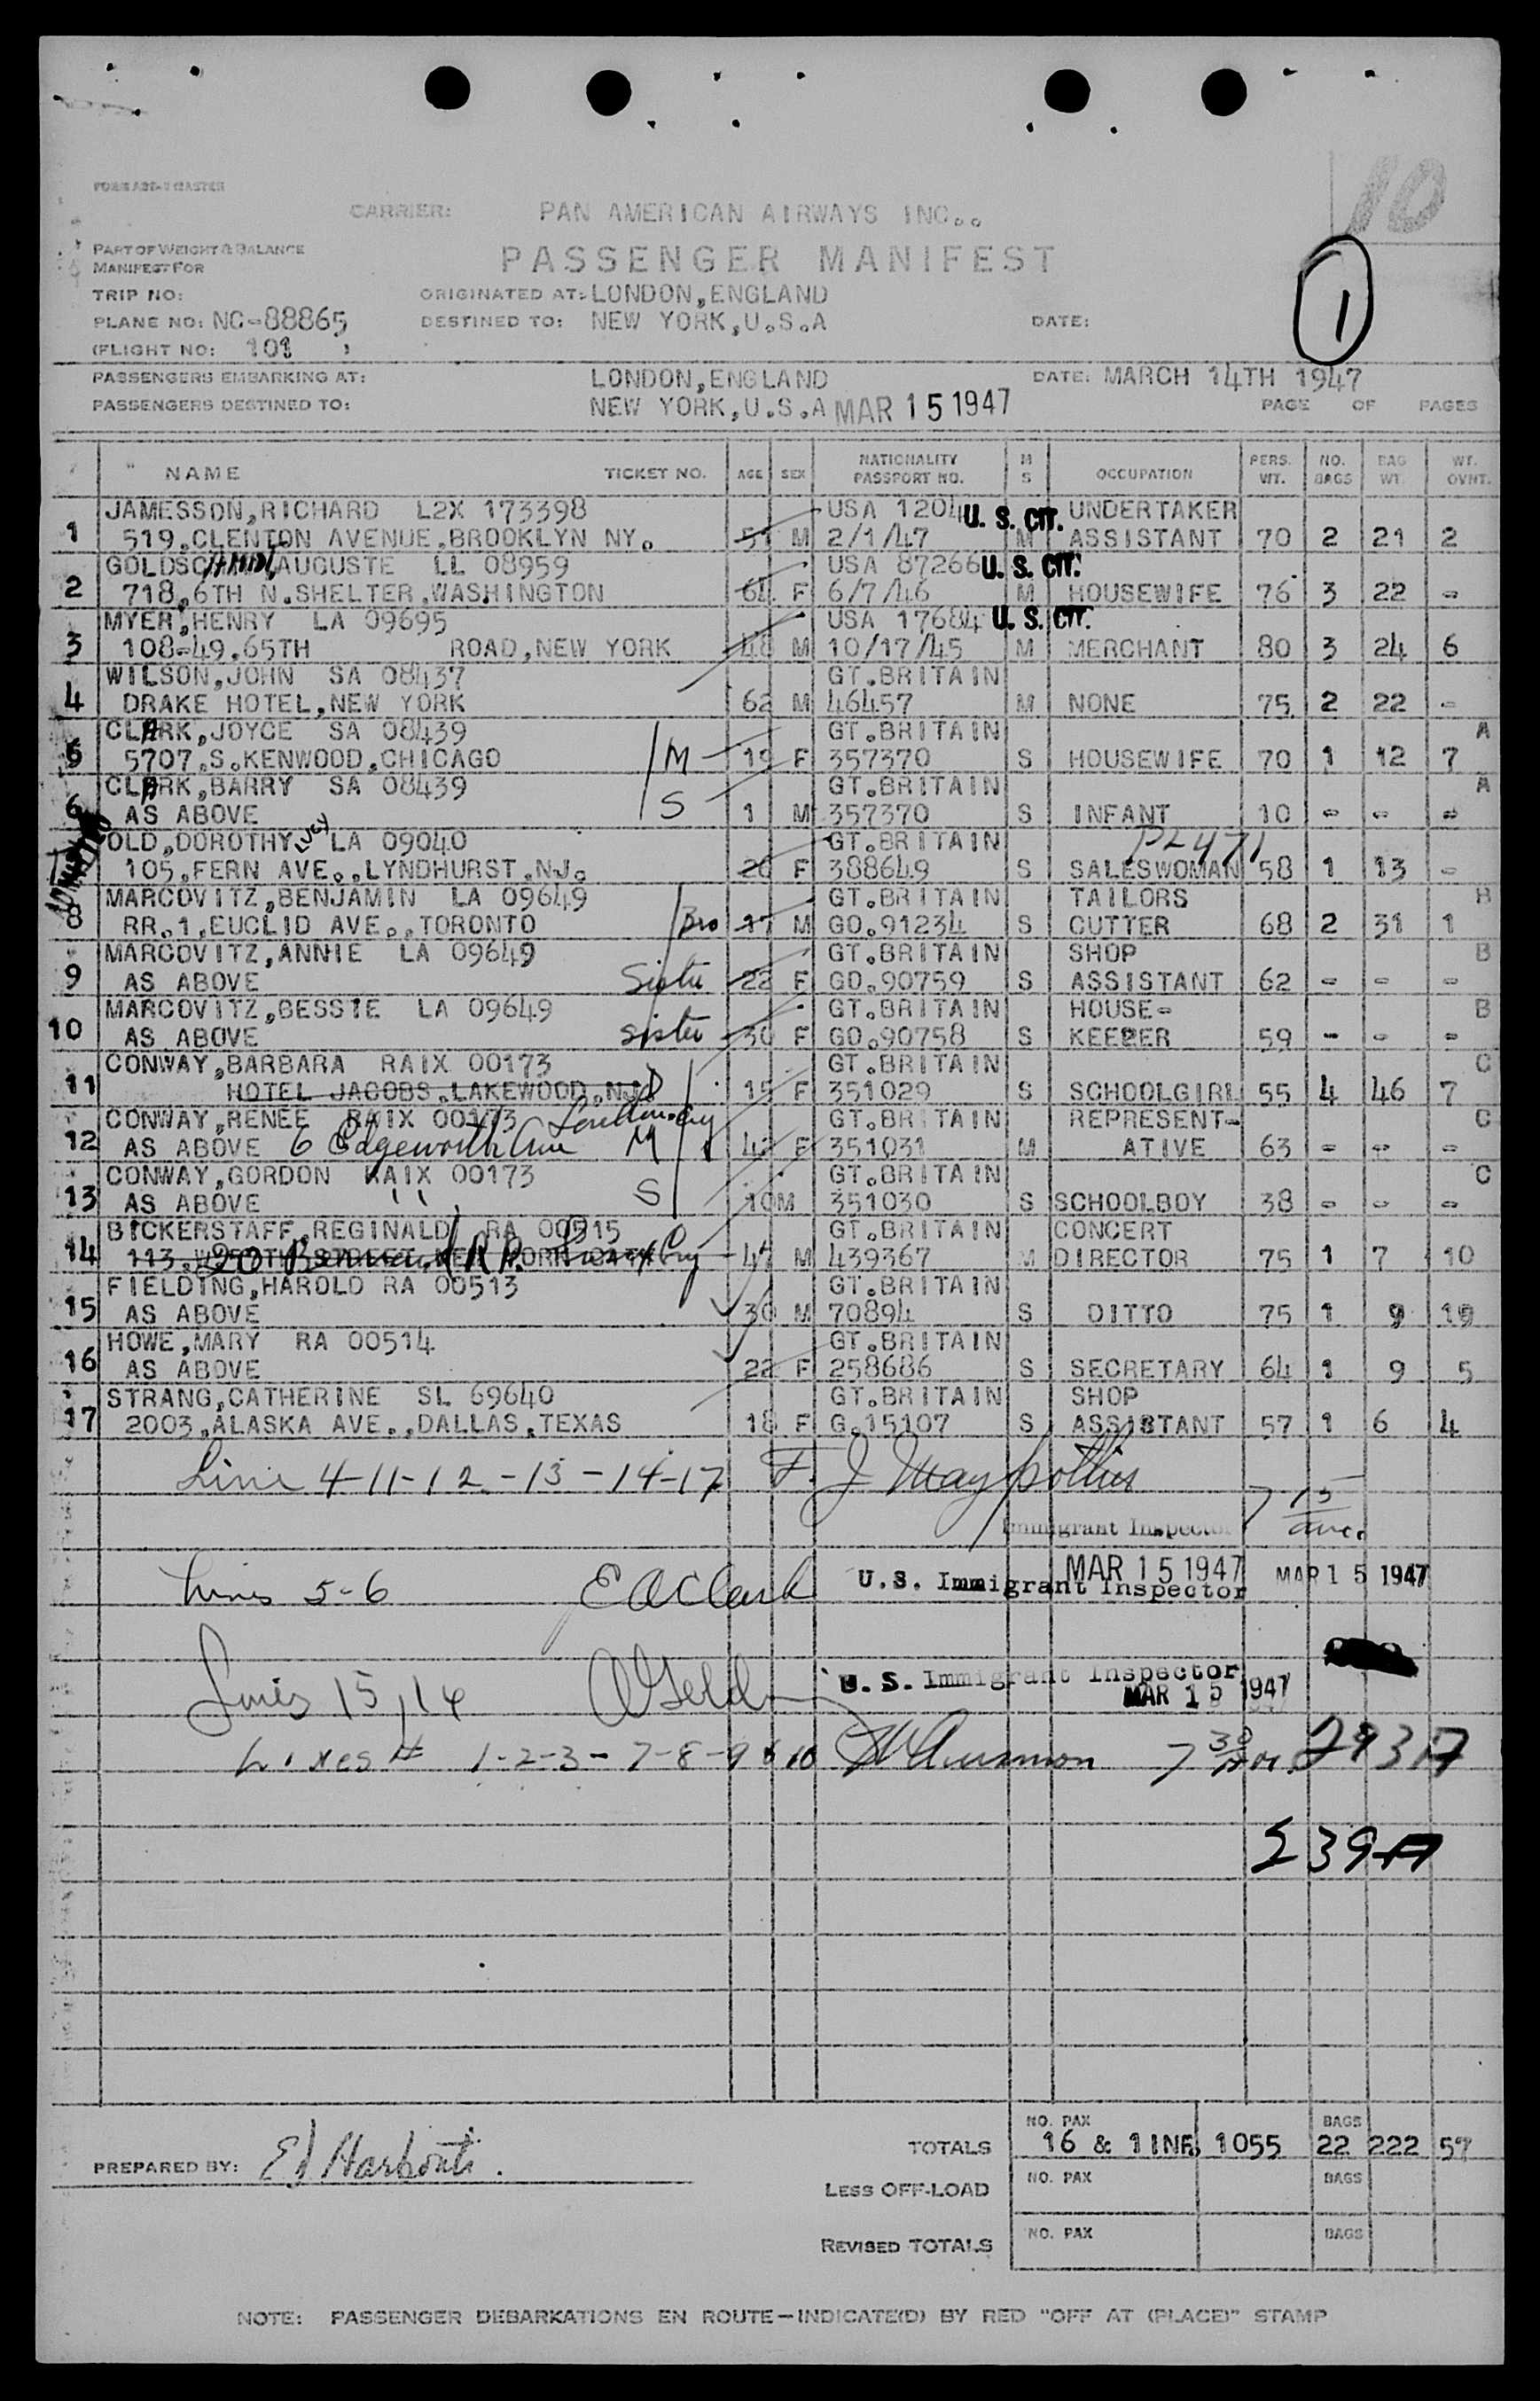 10
CARRIER: PAN AMERICAN AIRWAYS INC..
PART OF WEIGHT & BALANCE
MANIFEST FOR
PASSENGER MANIFEST
1
TRIP NO: ORIGINATED AT: LONDON,ENGLAND
PLANE NO: NC-88865 DESTINED TO: NEW YORK,U.S.A DATE:
(FLIGHT NO: 101 )
PASSENGERS EMBARKING AT: LONDON,ENGLAND DATE: MARCH 14TH 1947
PASSENGERS DESTINED TO: NEW YORK,U.S.A MAR 15 1947 PAGE OF PAGES
NAME TICKET NO. AGE SEX NATIONALITY PASSPORT NO. M S OCCUPATION PERS. WT. NO. BAGS BAG WT. WT. OVHT.
JAMESSON,RICHARD L2X 173398 USA 1204 U. S. CIT. UNDERTAKER
1 519,CLENTON AVENUE,BROOKLYN NY. 51 M 2/1/47 M ASSISTANT 70 2 21 2
GOLDSCHMIDT,AUGUSTE LL 08959 USA 87266 U. S. CIT.
2 718,6TH N.SHELTER,WASHINGTON 64 F 6/7/46 M HOUSEWIFE 76 3 22 -
MYER,HENRY LA 09695 USA 17684 U. S. CIT.
3 108-49,65TH ROAD,NEW YORK 48 M 10/17/45 M MERCHANT 80 3 24 6
WILSON,JOHN SA 08437 GT.BRITAIN
4 DRAKE HOTEL,NEW YORK 62 M 46457 M NONE 75 2 22 -
CLARK,JOYCE SA 08439 GT.BRITAIN A
5 5707,S.KENWOOD,CHICAGO M 19 F 357370 S HOUSEWIFE 70 1 12 7
CLARK,BARRY SA 08439 GT.BRITAIN A
6 AS ABOVE S 1 M 357370 S INFANT 10 - - -
OLD,DOROTHY LUCY LA 09040 GT.BRITAIN
105,FERN AVE.,LYNDHURST,NJ. 26 F 388649 S SALESWOMAN 58 1 13 -
MARCOVITZ,BENJAMIN LA 09649 GT.BRITAIN TAILORS B
8 RR.1,EUCLID AVE.,TORONTO Bro 17 M GO.91234 S CUTTER 68 2 31 1
MARCOVITZ,ANNIE LA 09649 GT.BRITAIN SHOP B
9 AS ABOVE Sister 22 F GO.90759 S ASSISTANT 62 - - -
MARCOVITZ,BESSIE LA 09649 GT.BRITAIN HOUSE- B
10 AS ABOVE sister 30 F GO.90758 S KEEPER 59 - - -
CONWAY,BARBARA RAIX 00173 GT.BRITAIN C
11 HOTEL JACOBS,LAKEWOOD,NJ. D 15 F 351029 S SCHOOLGIRL 55 4 46 7
CONWAY,RENEE RAIX 00173 GT.BRITAIN REPRESENT- C
12 AS ABOVE 6 Edgeworth Ave M 42 F 351031 M ATIVE 63 - - -
CONWAY,GORDON RAIX 00173 GT.BRITAIN C
13 AS ABOVE " S 10 M 351030 S SCHOOLBOY 38 - - -
BICKERSTAFF,REGINALD RA 00515 GT.BRITAIN CONCERT
14 113, 47 M 439367 M DIRECTOR 75 1 7 10
FIELDING,HAROLD RA 00513 GT.BRITAIN
15 AS ABOVE 30 M 70894 S DITTO 75 1 9 19
HOWE,MARY RA 00514 GT.BRITAIN
16 AS ABOVE 22 F 258686 S SECRETARY 64 1 9 5
STRANG,CATHERINE SL 69640 GT.BRITAIN SHOP
17 2003,ALASKA AVE.,DALLAS,TEXAS 18 F G.15107 S ASSISTANT 57 1 6 4
Line 4-11-12-13-14-17 F. J
Immigrant Inspector
Lines 5-6 E A Clark U.S. Immigrant Inspector MAR 15 1947 MAR 15 1947
Lines 15, 16 U. S. Immigrant Inspector
MAR 15 1947
Lines # 1-2-3-7-8-9 & 10 7 30 293A
239A
NO. PAX BAGS
TOTALS 16 & 1 INF. 1055 22 222 57
PREPARED BY:
LESS OFF-LOAD NO. PAX BAGS
REVISED TOTALS NO. PAX BAGS
NOTE: PASSENGER DEBARKATIONS EN ROUTE—INDICATE(D) BY RED "OFF AT (PLACE)" STAMP